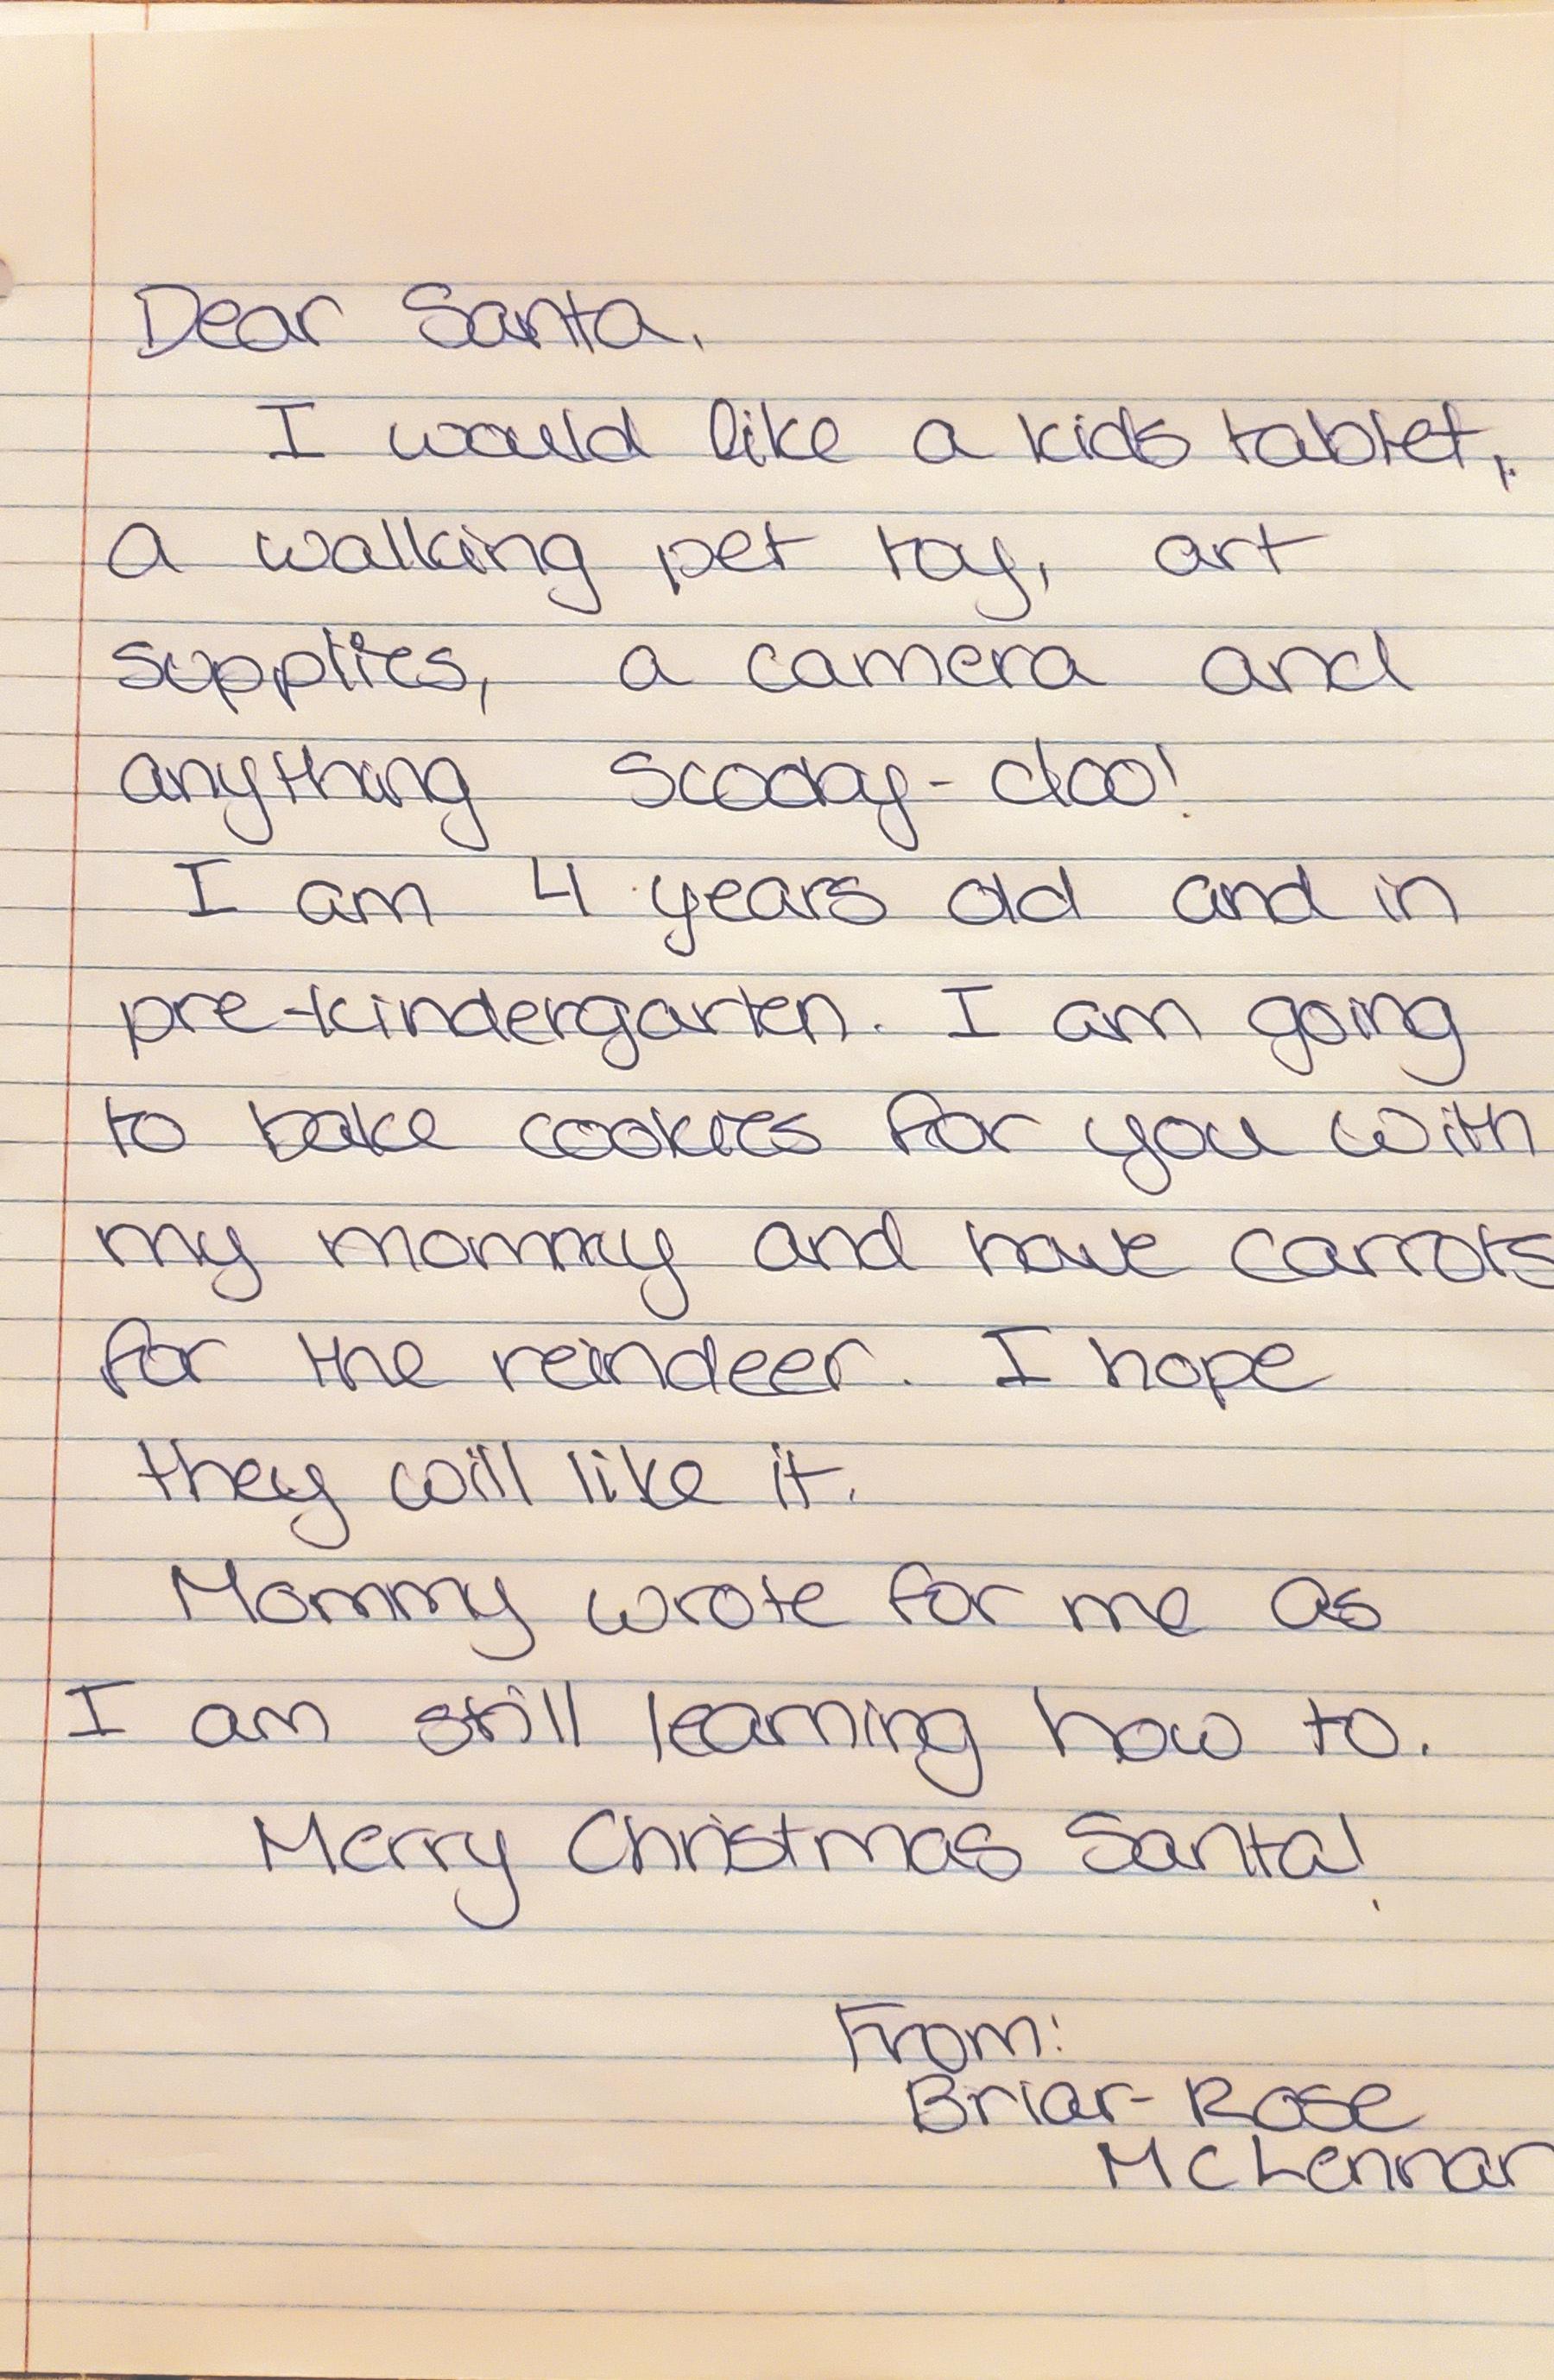 Dear Santa,
I would like a kids tablet,
a walking pet toy, art
supplies, a camera and
anything Scooby-doo!
I am 4 years old and in
pre-kindergarten. I am going
to bake cookies for you with
my mommy and have carrots
for the reindeer. I hope
they will like it.
Mommy wrote for me as
I am still learning how to.
Merry Christmas Santa!
From:
Briar-Rose
McLennan